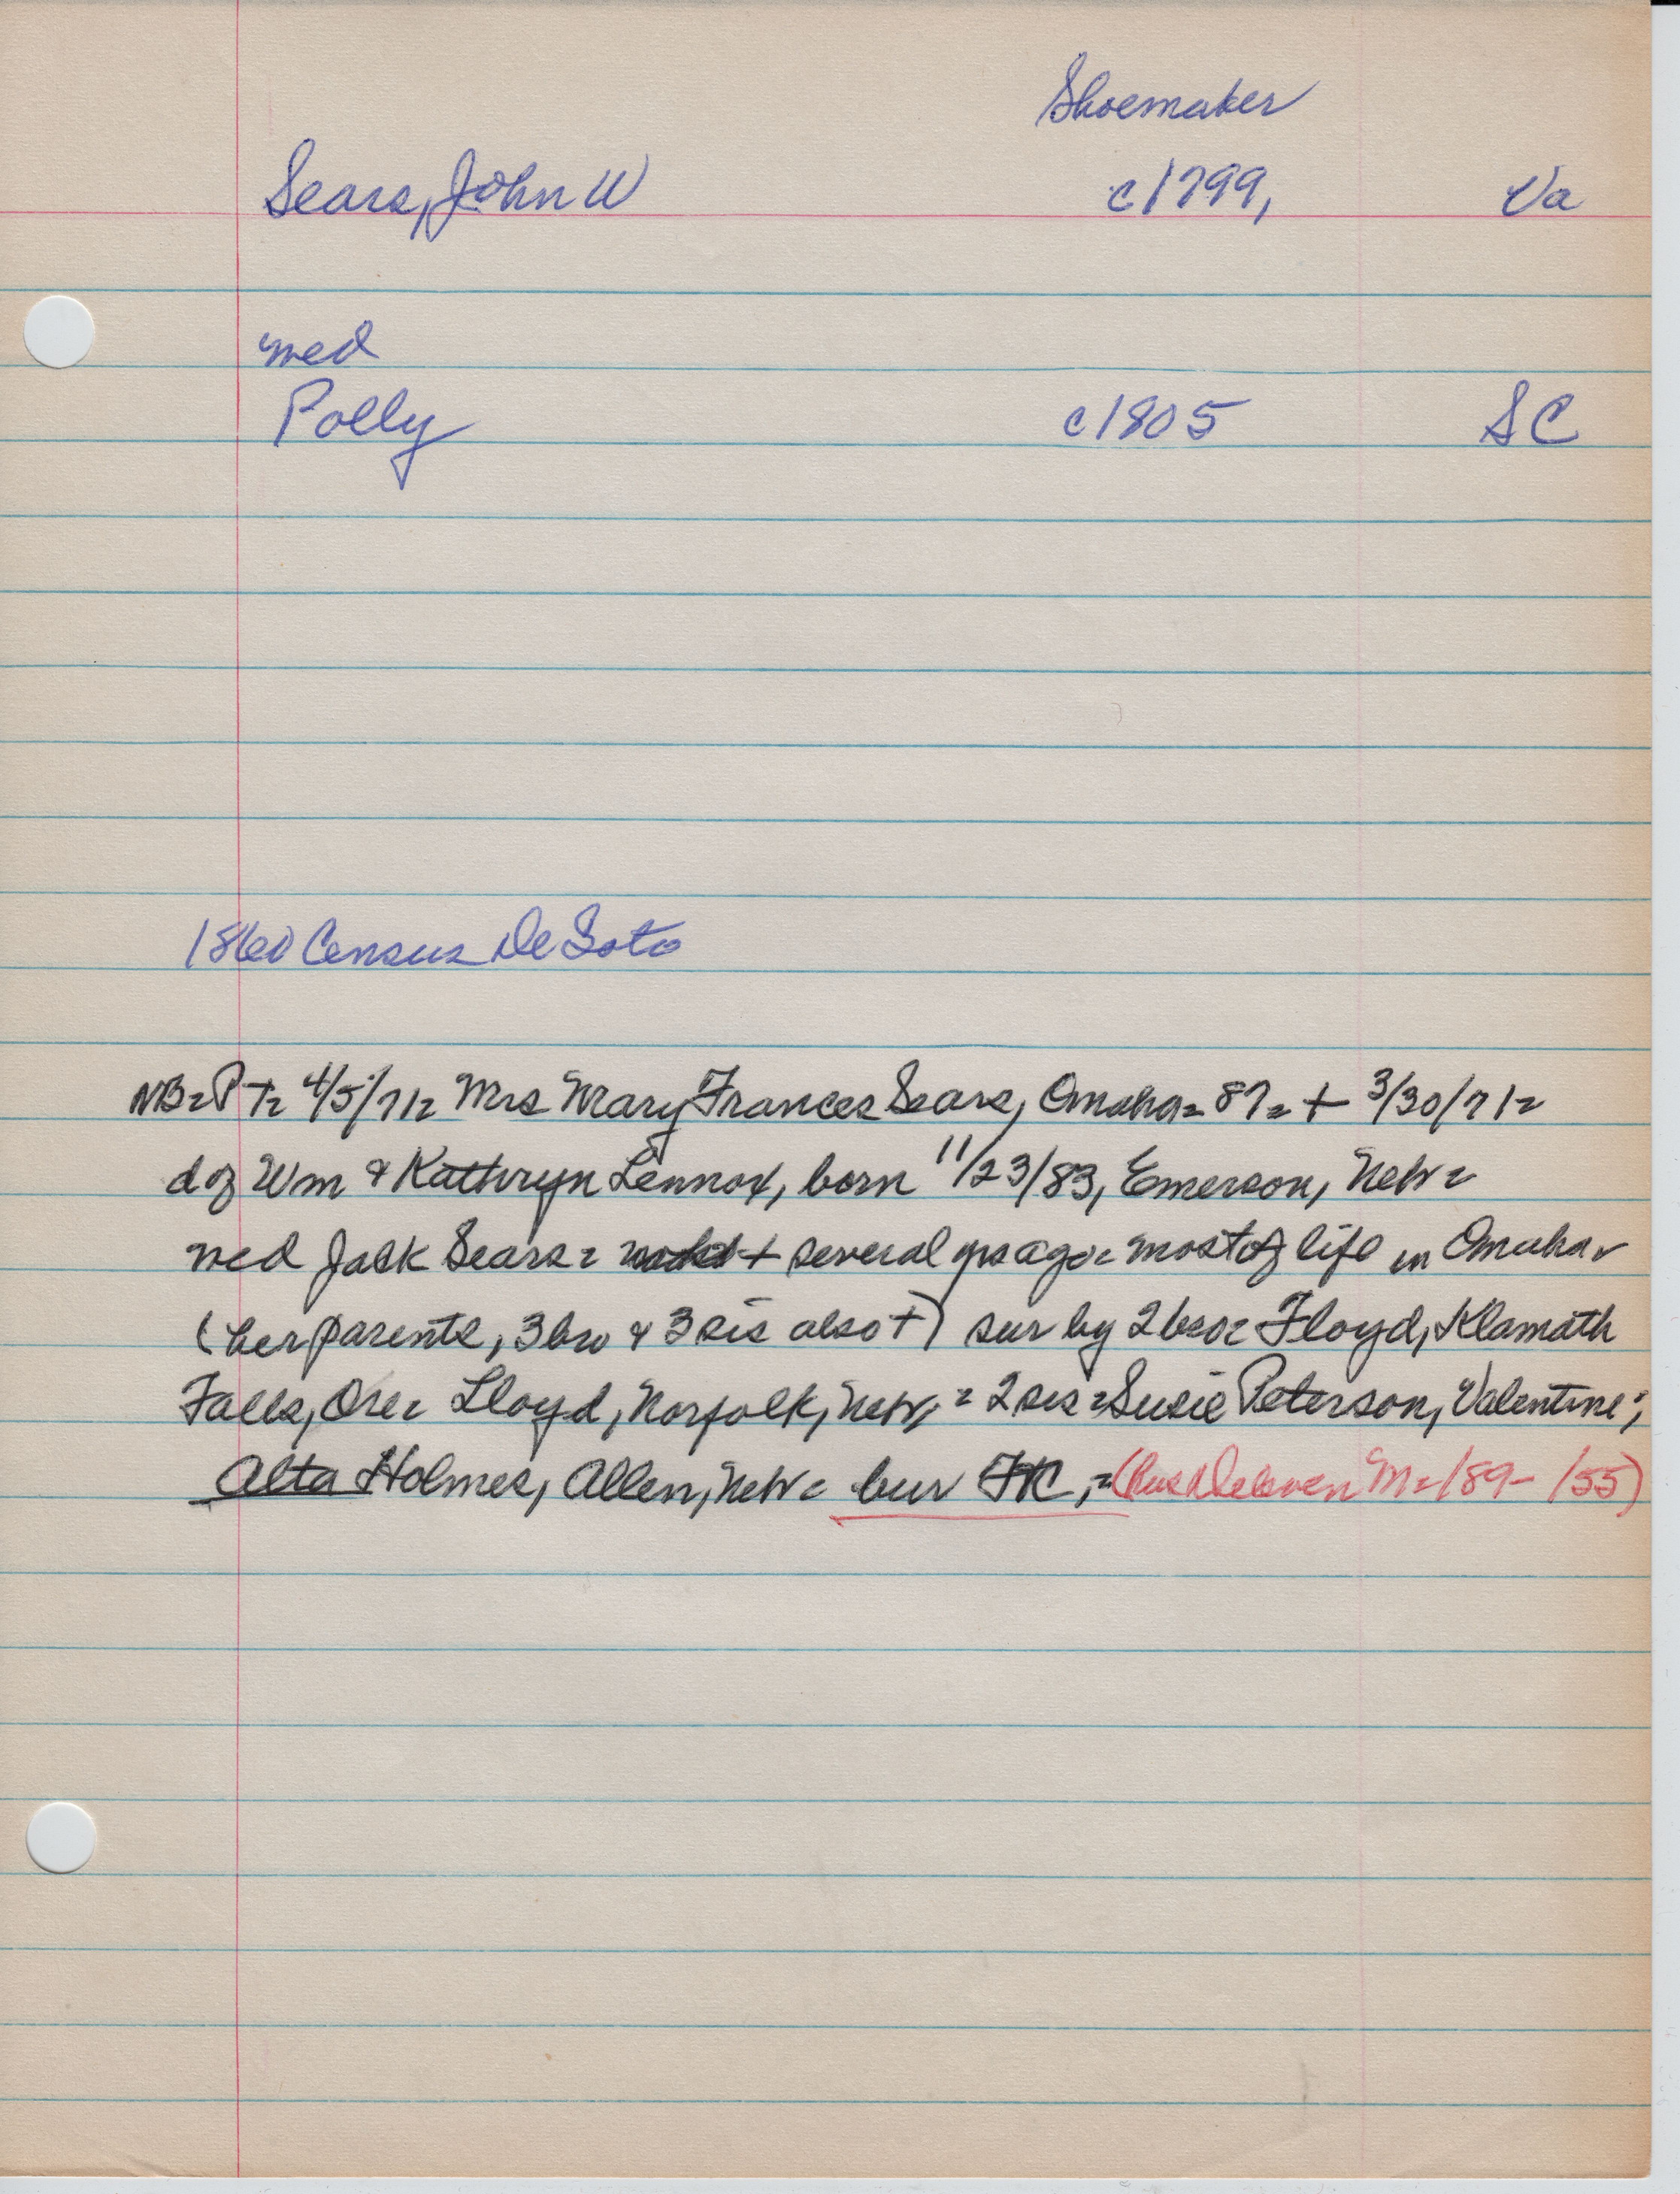 Shoemaker
Sears, John W c1799, Va
med
Polly c1805 SC
1860 Census De Soto
NB=PT= 4/5/71= Mrs Mary Frances Sears, Omaha= 87= + 3/30/71=
d of Wm & Kathryn Lennox, born 11/23/83, Emerson, Nebr=
med Jack Sears= + several yrs ago= most of life in Omaha
(her parents, 3 bro & 3 sis also +) sur by 2 bro= Floyd, Klamath
Falls, Ore= Lloyd, Norfolk, Nebr,= 2 sis= Susie Peterson, Valentine;
Alta Holmes, Allen, Nebr= bur FtC,= M=189-/55)